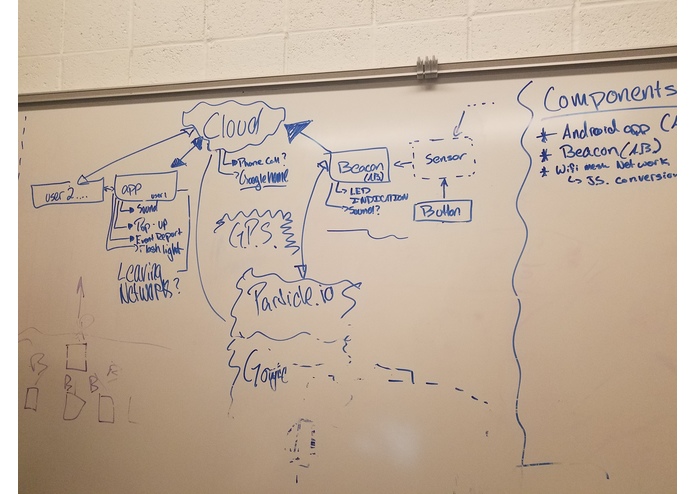 Cloud
Phone Call?
Google Home
user 2....
app user 1
Sound
Pop-up
Event Report
Flashlight
Leaving
Networks?
G.P.S.
Beacon
LED
INDICATION
Sound?
Sensor
Button
Particle.io
Google
B
B
B
B
Components
* Android app
* Beacon
* WiFi mesh Network
JS. conversion